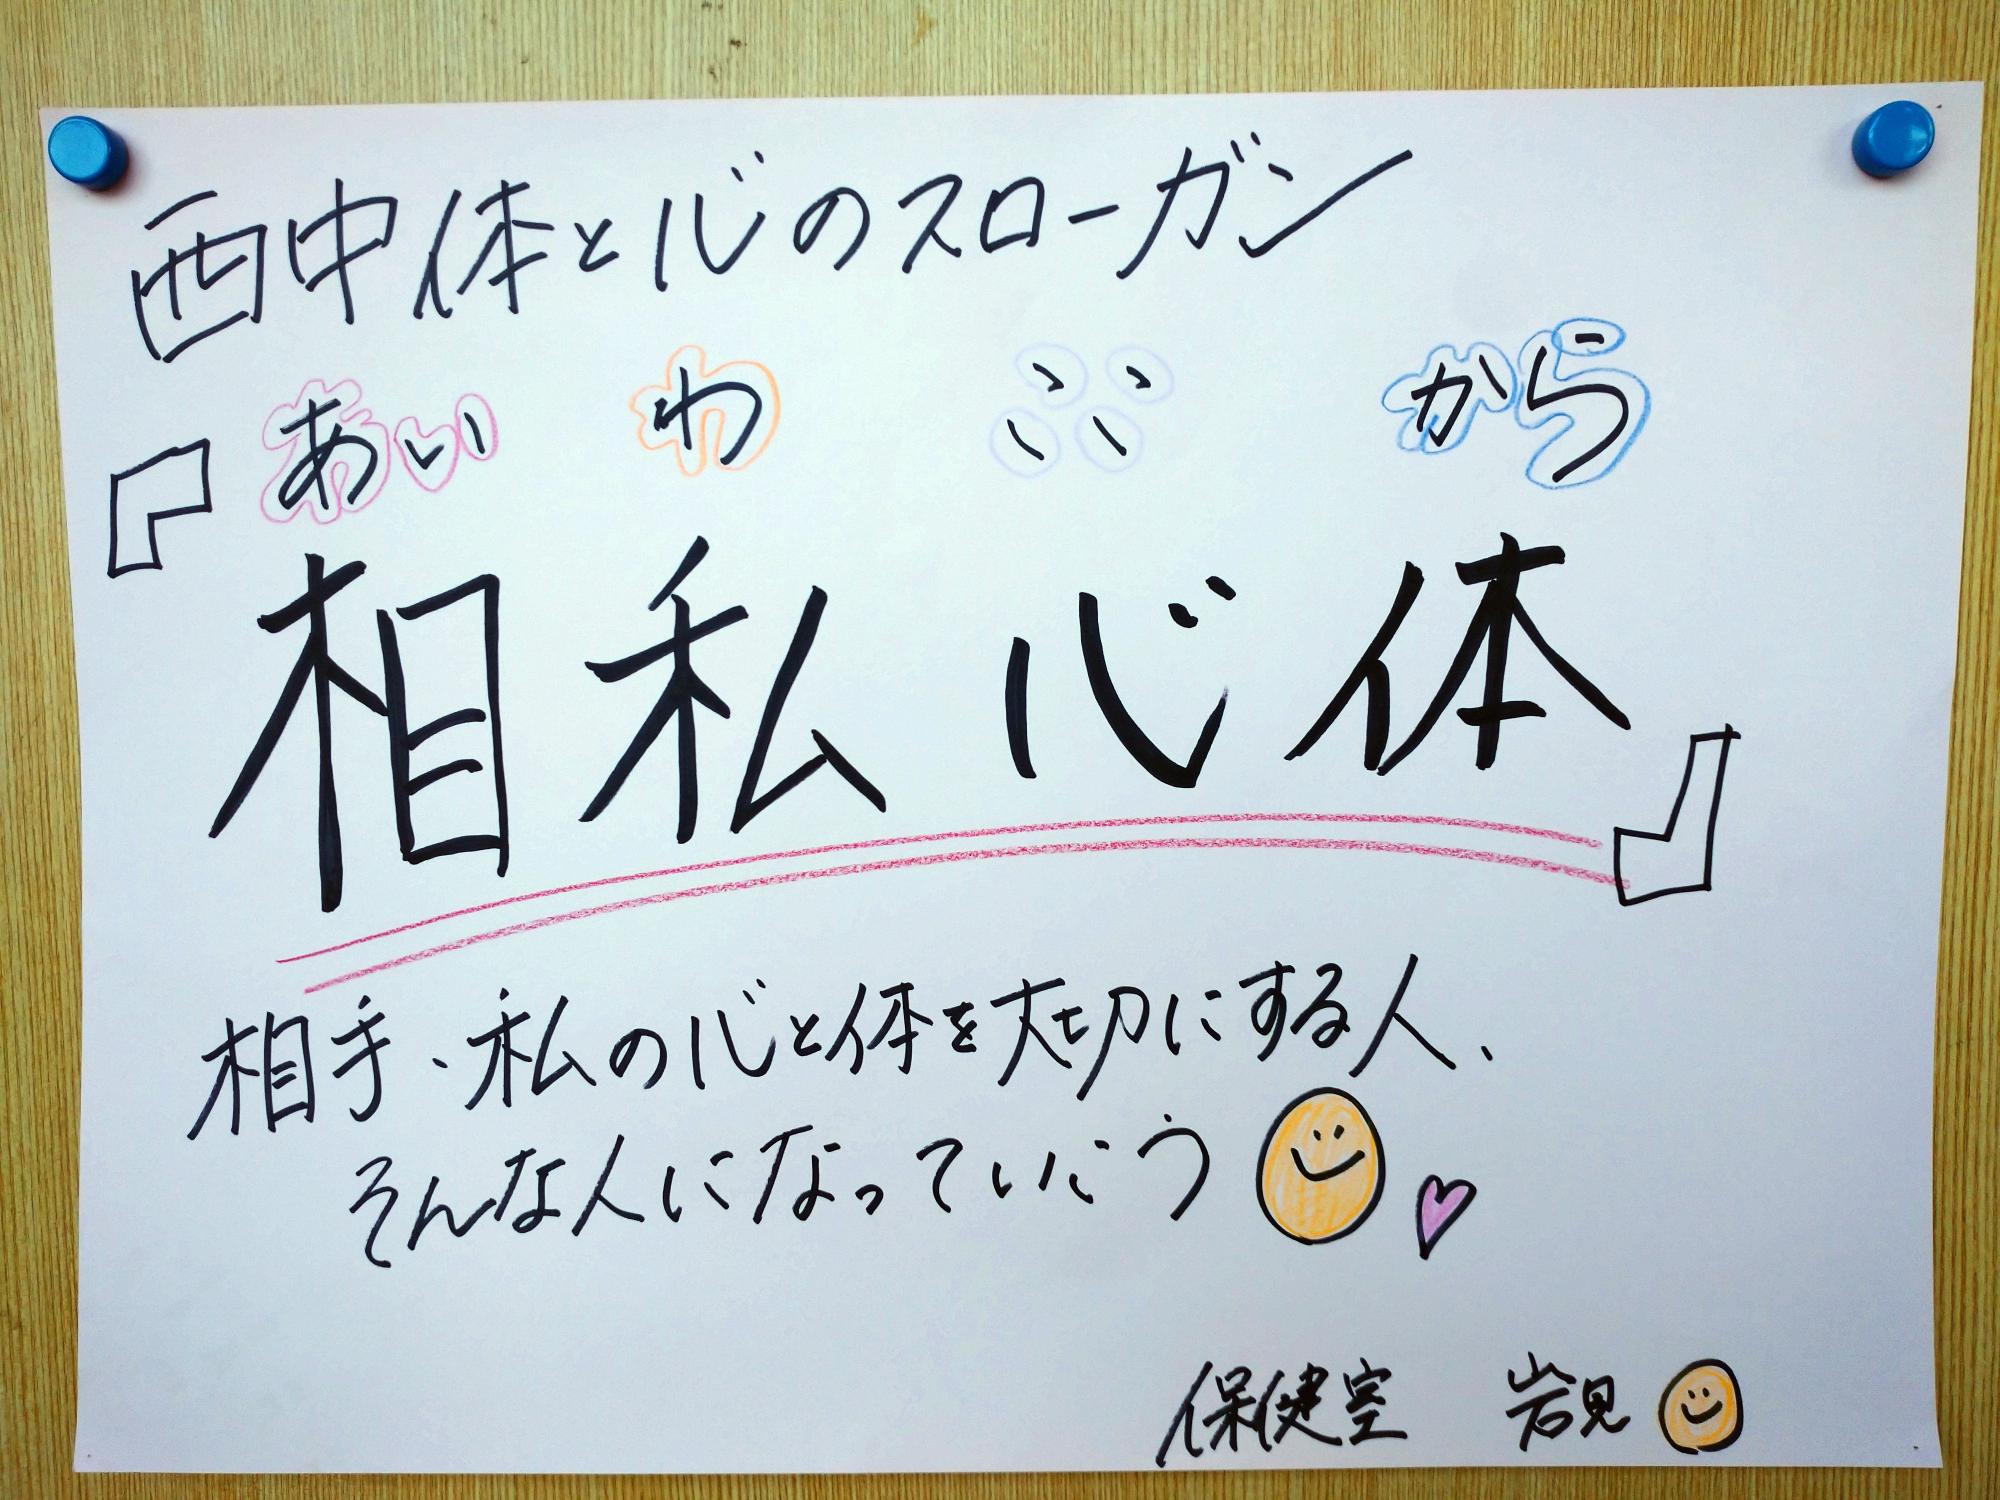 西中体と心のスローガン
あい わ ここ から
『相私心体』
相手・私の心と体を大切にする人、
そんな人になっていこう
保健室 岩見